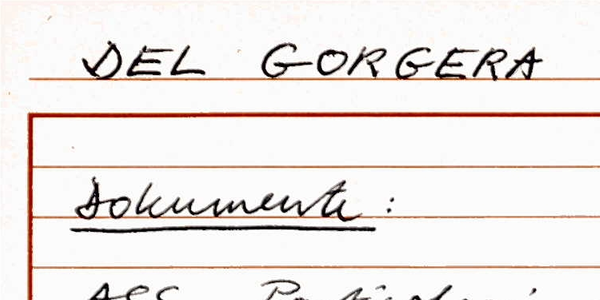 DEL GORGERA
Dokumente :